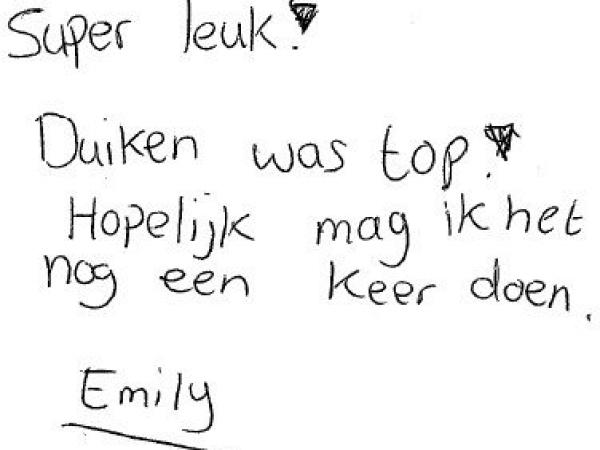 Super leuk!
Duiken was top!
Hopelijk mag ik het
nog een keer doen.
Emily